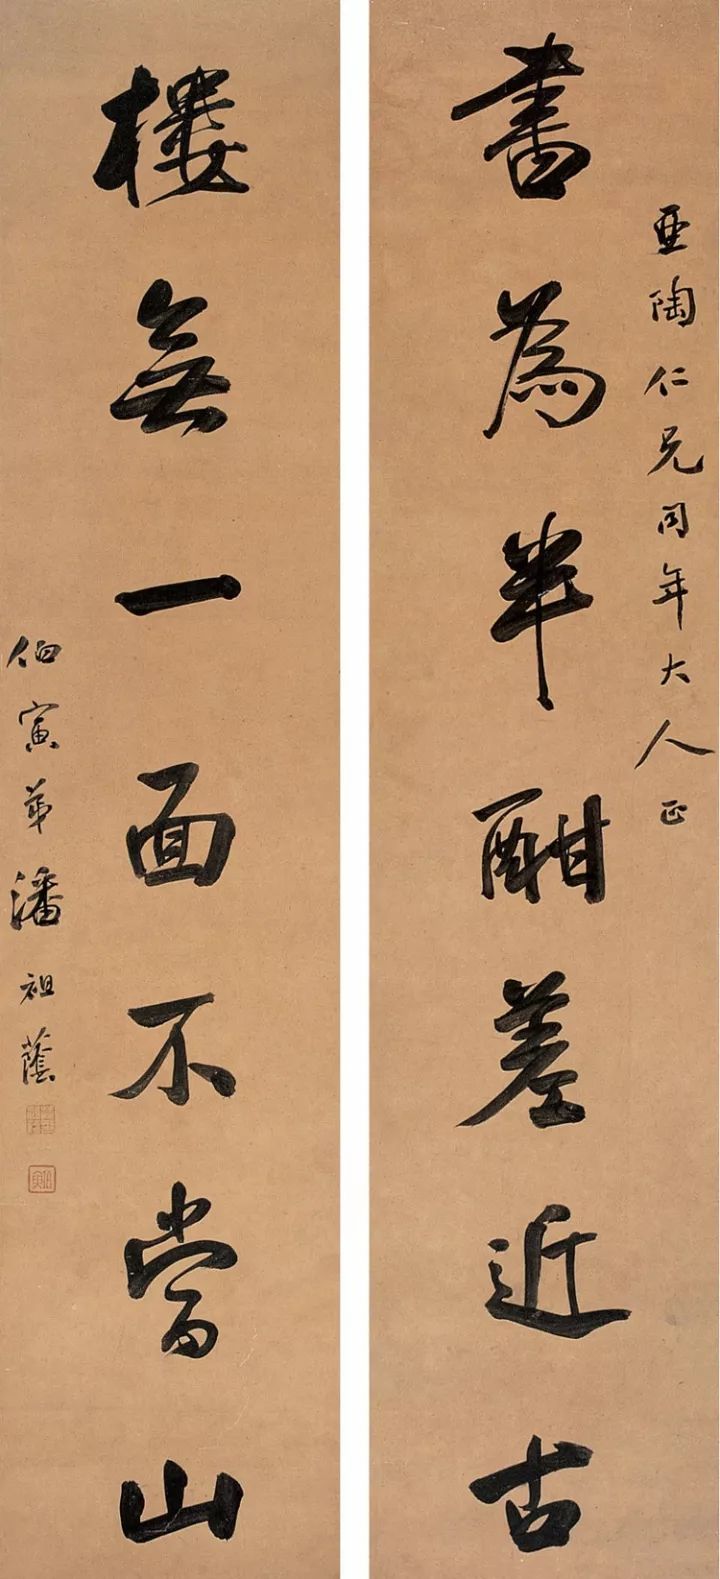 亞陶仁兄同年大人正
書為半酣差近古
樓無一面不當山
伯寅弟潘祖蔭
伯寅